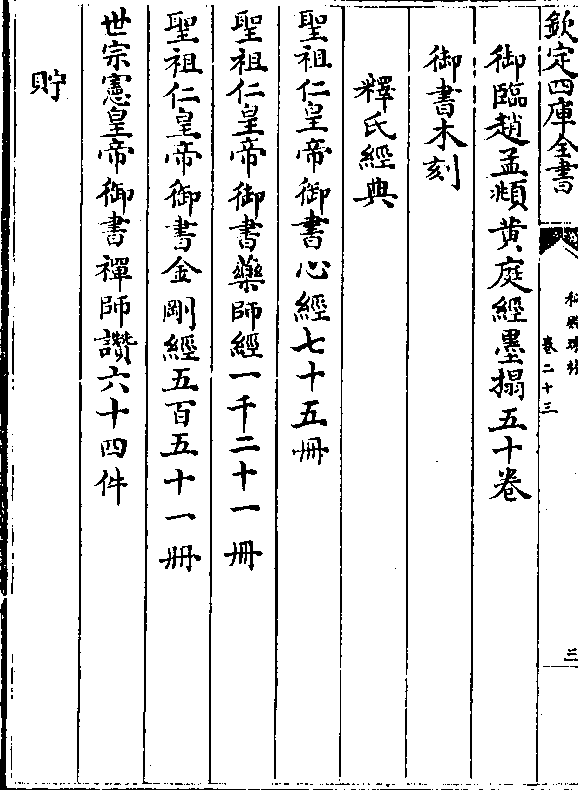 欽定四庫全書
卷二十三
三
御臨趙孟頫黄庭經墨搨五十卷
御書木刻
釋氏經典
聖祖仁皇帝御書心經七十五冊
聖祖仁皇帝御書藥師經一千二十一冊
聖祖仁皇帝御書金剛經五百五十一冊
世宗憲皇帝御書禪師讚六十四件
貯